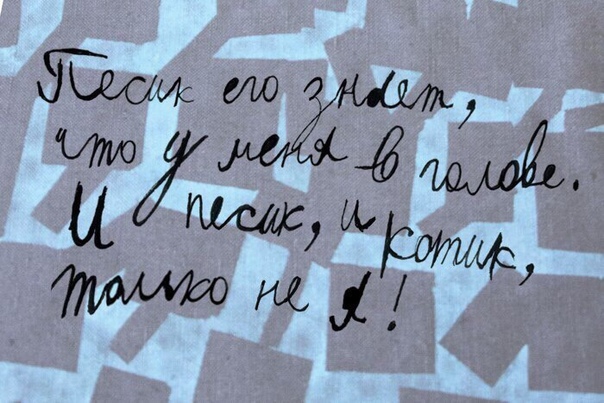 Песик его знает,
что у меня в голове.
И песик, и котик,
только не я!